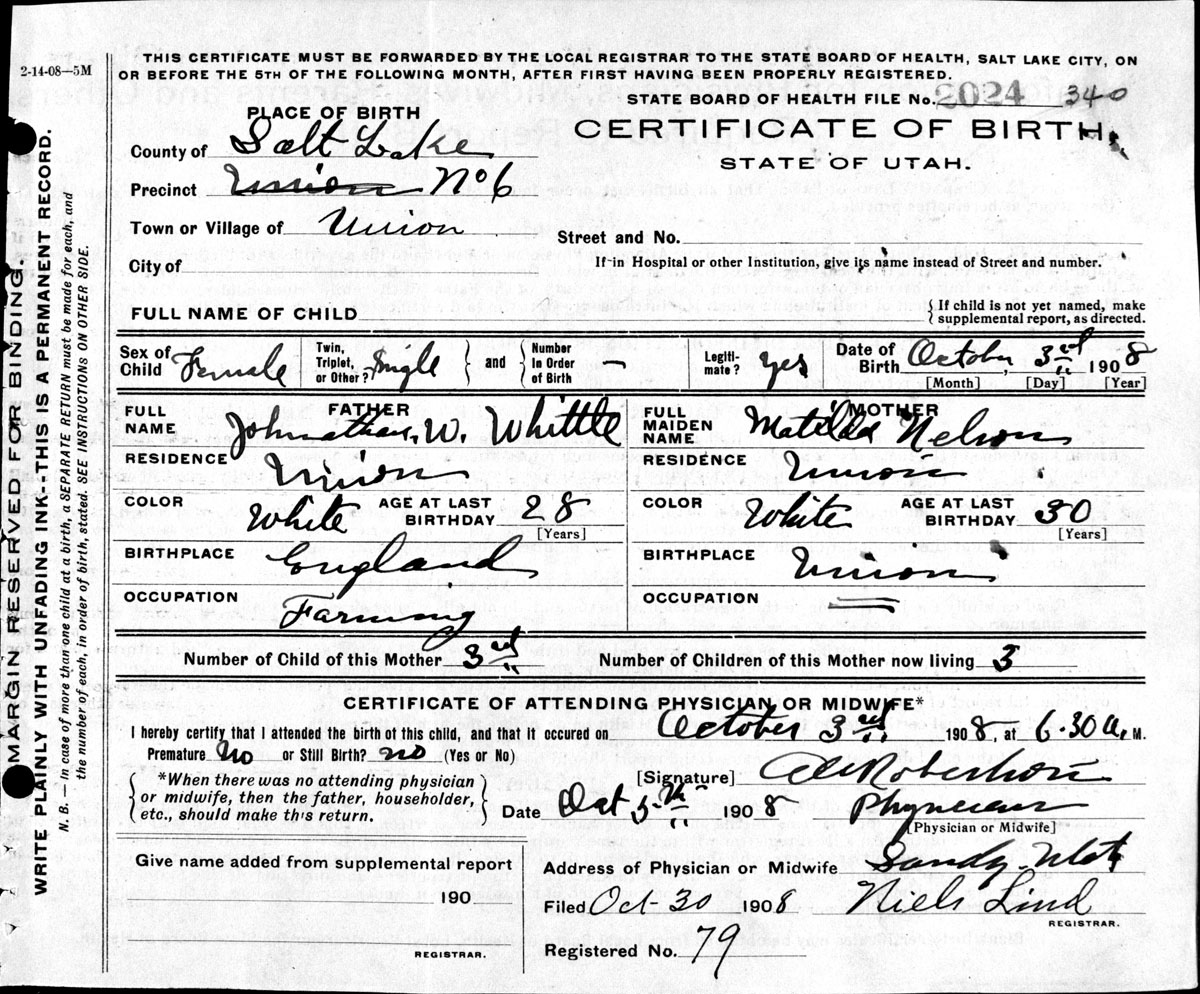 2-14-08—5M
THIS CERTIFICATE MUST BE FORWARDED BY THE LOCAL REGISTRAR TO THE STATE BOARD OF HEALTH, SALT LAKE CITY, ON
OR BEFORE THE 5TH OF THE FOLLOWING MONTH, AFTER FIRST HAVING BEEN PROPERLY REGISTERED.
STATE BOARD OF HEALTH FILE No. 2024 340
PLACE OF BIRTH
CERTIFICATE OF BIRTH.
STATE OF UTAH.
County of Salt Lake
Precinct Union No 6
Town or Village of Union
Street and No.
City of
If in Hospital or other Institution, give its name instead of Street and number.
FULL NAME OF CHILD
{ If child is not yet named, make
supplemental report, as directed.
Sex of Child Female Twin, Triplet, or Other? Single } and { Number In Order of Birth — Legitimate? yes Date of Birth October, 3rd 1908
[Month] [Day] [Year]
FATHER
FULL NAME Johnathan. W. Whittle
RESIDENCE Union
COLOR White AGE AT LAST BIRTHDAY 28
[Years]
BIRTHPLACE England
OCCUPATION Farming
MOTHER
FULL MAIDEN NAME Matilda Nelson
RESIDENCE Union
COLOR White AGE AT LAST BIRTHDAY 30
[Years]
BIRTHPLACE Union
OCCUPATION
Number of Child of this Mother 3rd Number of Children of this Mother now living 3
CERTIFICATE OF ATTENDING PHYSICIAN OR MIDWIFE*
I hereby certify that I attended the birth of this child, and that it occured on October 3rd 1908, at 6.30 a. M.
Premature No or Still Birth? no (Yes or No)
{ *When there was no attending physician
or midwife, then the father, householder,
etc., should make this return. }
[Signature] Robertson
Date Oct 5th 1908 Physician
[Physician or Midwife]
Give name added from supplemental report
190
REGISTRAR.
Address of Physician or Midwife Sandy Utah
Filed Oct-30 1908 Niels Lind
REGISTRAR.
Registered No. 79
MARGIN RESERVED FOR BINDING.
WRITE PLAINLY WITH UNFADING INK--THIS IS A PERMANENT RECORD.
N. B.—In case of more than one child at a birth, a SEPARATE RETURN must be made for each, and
the number of each, in order of birth, stated. SEE INSTRUCTIONS ON OTHER SIDE.